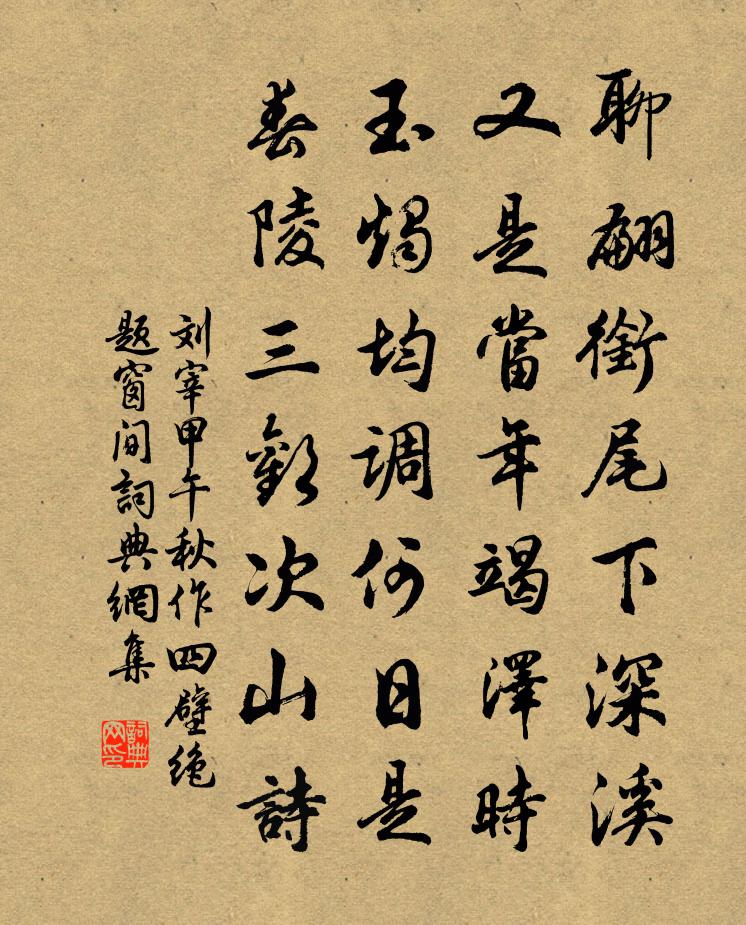 聊翩銜尾下深溪
又是當年竭澤時
玉燭均調何日是
舂陵三歎次山詩
刘宰甲午秋作四壁绝
题窗间詞典網集
詞典网印